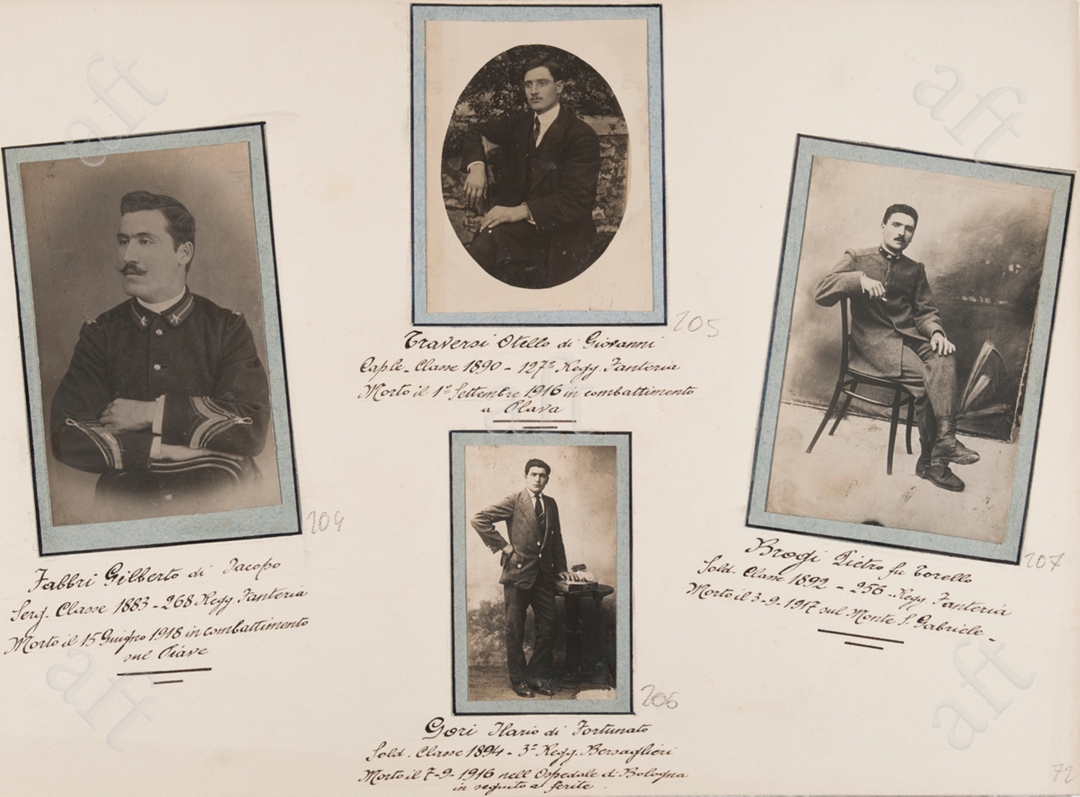 204
Fabbri Gilberto di Jacopo
Serg. Classe 1883 - 268 Regg. Fanteria
Morto il 15 Giugno 1918 in combattimento
sul Piave
205
Traversi Otello di Giovanni
Cap.le Classe 1890 - 127° Regg. Fanteria
Morto il 1° Settembre 1916 in combattimento
a Plava
206
Gori Ilario di Fortunato
Sold. Classe 1894 - 3° Regg. Bersaglieri
Morto il 7-9-1916 nell Ospedale di Bologna
in seguito a ferite.
207
Brogi Pietro fu Torello
Sold. Classe 1892 - 256 Regg. Fanteria
Morto il 3-9-1917 sul Monte S. Gabriele -
72
aft
aft
aft
aft